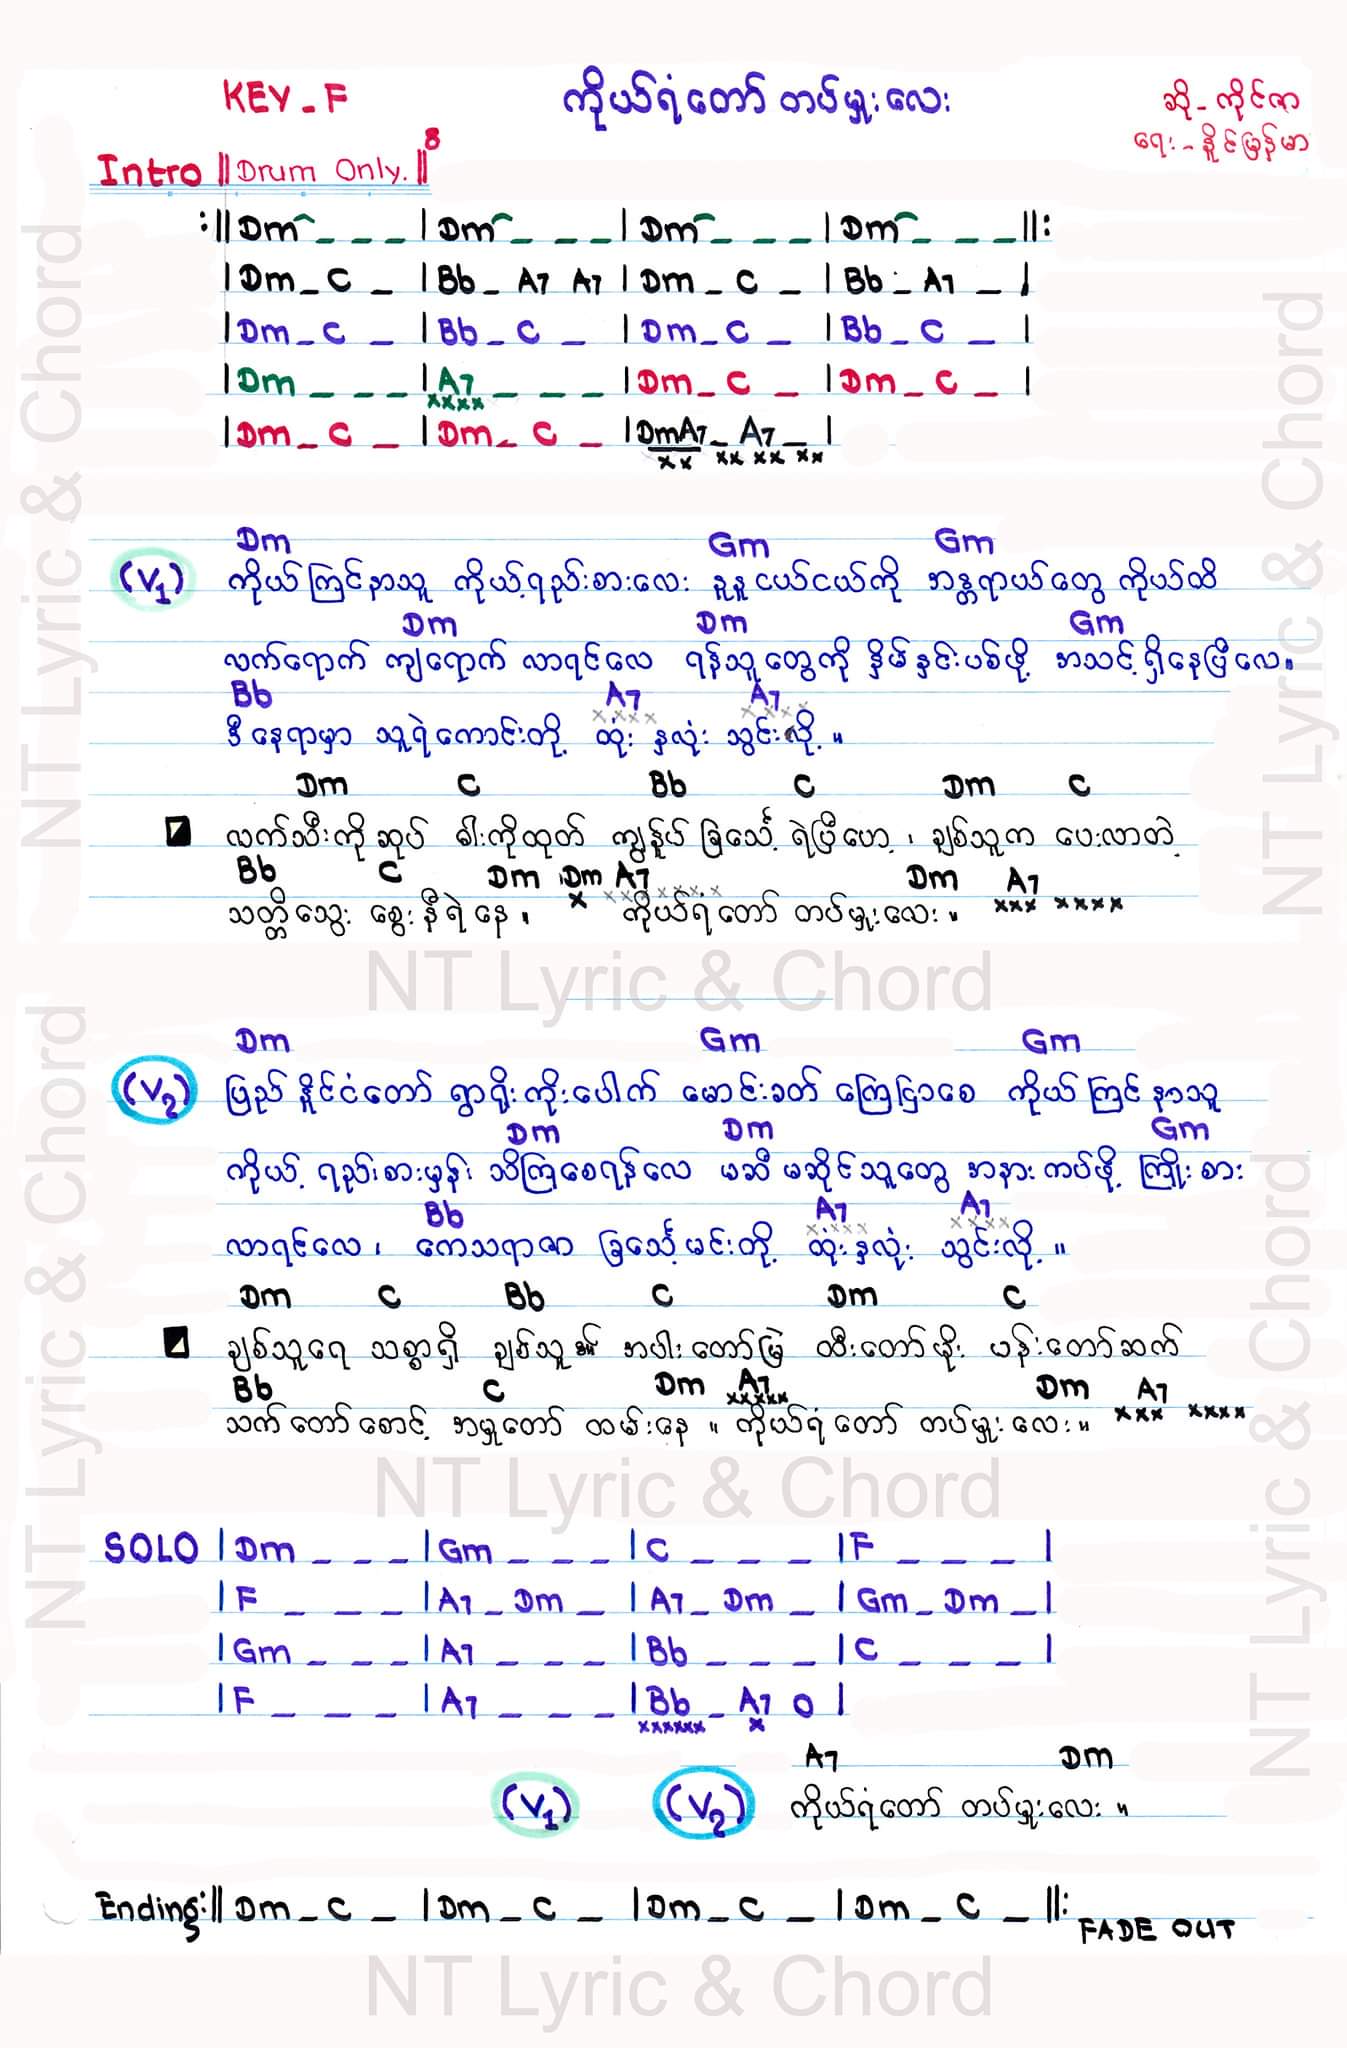 KEY_F
ကိုယ်ရံတော် တပ်မှူးလေး
ဆို - ကိုင်ဇာ
ရေး - နိုင်မြန်မာ
Intro ||Drum Only.||8
:||Dm _ _ _ |Dm _ _ _ |Dm _ _ _ |Dm _ _ _ ||:
|Dm _ C _ |Bb _ A7 A7 |Dm _ C _ |Bb _ A7 _ |
|Dm _ C _ |Bb _ C _ |Dm _ C _ |Bb _ C _ |
|Dm _ _ _ |A7 _ _ _ |Dm _ C _ |Dm _ C _ |
xxxx
|Dm _ C _ |Dm _ C _ |DmA7 _ A7 _ |
xx xx xx xx
Dm Gm Gm
(V1) ကိုယ်ကြင်နာသူ ကိုယ့်ရည်းစားလေး နုနုငယ်ငယ်ကို အန္တရာယ်တွေ ကိုယ်ထိ
Dm Dm Gm
လက်ရောက် ကျရောက် လာရင်လေ ရန်သူတွေကို နှိမ်နှင်းပစ်ဖို့ အသင့်ရှိနေပြီလေ။
Bb A7 A7
xxxx xxxx
ဒီနေရာမှာ သူရဲကောင်းတို့ ထုံး နှလုံး သွင်းလို့ ။
Dm C Bb C Dm C
လက်သီးကိုဆုပ် ဓါးကိုထုတ် ကျွန်ုပ် ခြင်္သေ့ ရဲပြီဟေ့ ၊ ချစ်သူက ပေးလာတဲ့
Bb C Dm Dm A7 Dm A7
x xxxxxxx xxx xxxx
သတ္တိသွေး စွေးနီရဲနေ ၊ ကိုယ်ရံတော် တပ်မှူးလေး ။
NT Lyric & Chord
Dm Gm Gm
(V2) ပြည် နိုင်ငံတော် ရွာရိုးကိုးပေါက် မောင်းခတ် ကြေငြာစေ ကိုယ် ကြင် နာသူ
Dm Dm Gm
ကိုယ့် ရည်းစားမှန်း သိကြစေရန်လေ မဆီ မဆိုင်သူတွေ အနားကပ်ဖို့ ကြိုးစား
Bb A7 A7
xxxx xxxx
လာရင်လေ ၊ ကေသရာဇာ ခြင်္သေ့မင်းတို့ ထုံးနှလုံး သွင်းလို့ ။
Dm C Bb C Dm C
ချစ်သူရေ သစ္စာရှိ ချစ်သူ အပါးတော်မြဲ ထီးတော်မိုး ပန်းတော်ဆက်
Bb C Dm A7 Dm A7
xxxxx xxx xxxx
သက်တော်စောင့် အမှုတော် ထမ်းနေ ။ ကိုယ်ရံတော် တပ်မှူးလေး ။
NT Lyric & Chord
SOLO |Dm _ _ _ |Gm _ _ _ |C _ _ _ |F _ _ _ |
|F _ _ _ |A7 _ Dm _ |A7 _ Dm _ |Gm _ Dm _ |
|Gm _ _ _ |A7 _ _ _ |Bb _ _ _ |C _ _ _ |
|F _ _ _ |A7 _ _ _ |Bb _ A7 0 |
xxxxxx x
A7 Dm
(V1) (V2) ကိုယ်ရံတော် တပ်မှူးလေး ။
Ending:||Dm _ C _ |Dm _ C _ |Dm _ C _ |Dm _ C _ ||:
FADE OUT
NT Lyric & Chord
NT Lyric & Chord
NT Lyric & Chord
NT Lyric & Chord
NT Lyric & Chord